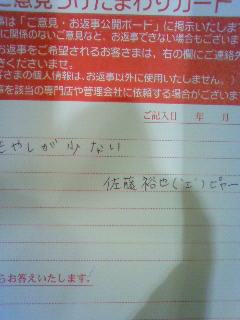 ご意見うけたまわりカード
事は「ご意見・お返事公開ボード」に掲示いたしま
に関係のないご意見など、お返事できない場合もございま
お返事をご希望されるお客さまは、右の欄にご連絡
きくださいませ。
客さまの個人情報は、お返事以外に使用いたしません。
事を該当の専門店や管理会社に依頼する場合がござい
ご記入日　年　月
もやしが少ない
佐藤裕也(´ェ`)ピャー
らお答えいたします。